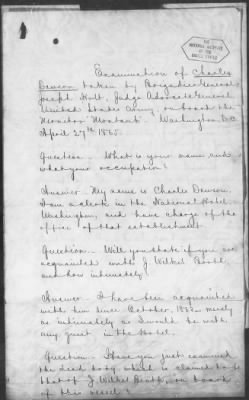 THE
NATIONAL ARCHIVES
OF THE
UNITED STATES
Examination of Charles
Dawson taken by Brigadier General
Joseph Holt, Judge Advocate General
United States Army, on board the
Monitor "Montauk". Washington D.C.
April 27th 1865.
Question. What is your name and
what your occupation?
Answer. My name is Charles Dawson,
I am a clerk in the National Hotel,
Washington, and have charge of the
office of that establishment.
Question. Will you state if you are
acquainted with J. Wilkes Booth,
and how intimately?
Answer. I have been acquainted
with him since October, merely
as intimately as I would be with
any guest in the hotel.
Question. Have you just examined
the dead body which is claimed to be
that of J. Wilkes Booth, on board
of this vessel?